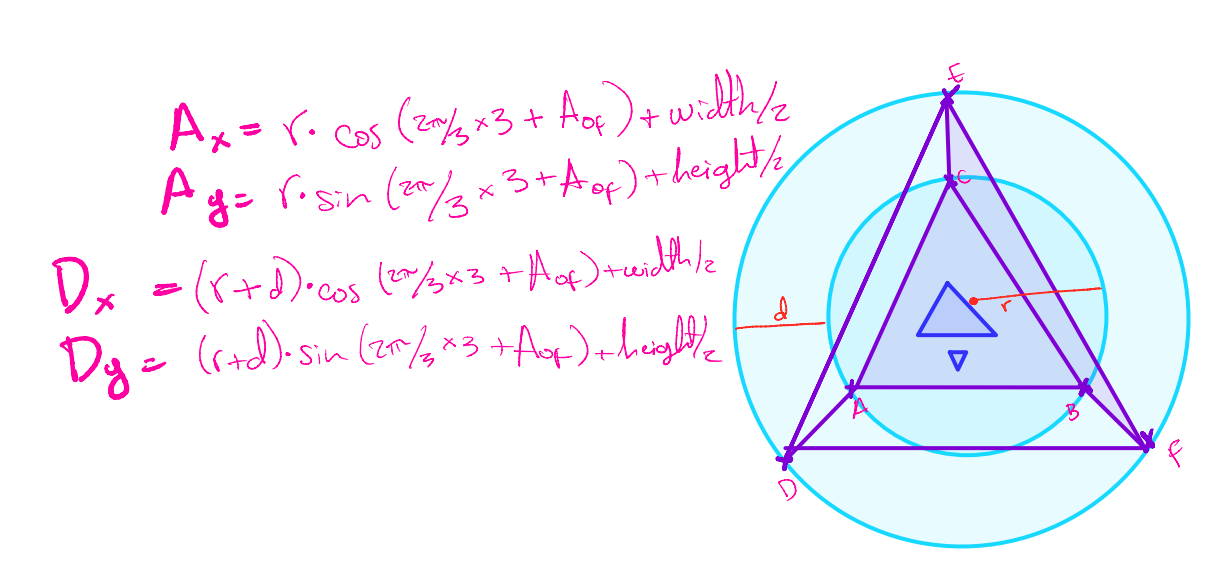 Ax = r · cos (2π/3 × 3 + Aof) + width/2
Ay = r · sin (2π/3 × 3 + Aof) + height/2
Dx = (r+d) · cos (2π/3 × 3 + Aof) + width/2
Dy = (r+d) · sin (2π/3 × 3 + Aof) + height/2
E
C
d
r
A
B
D
F